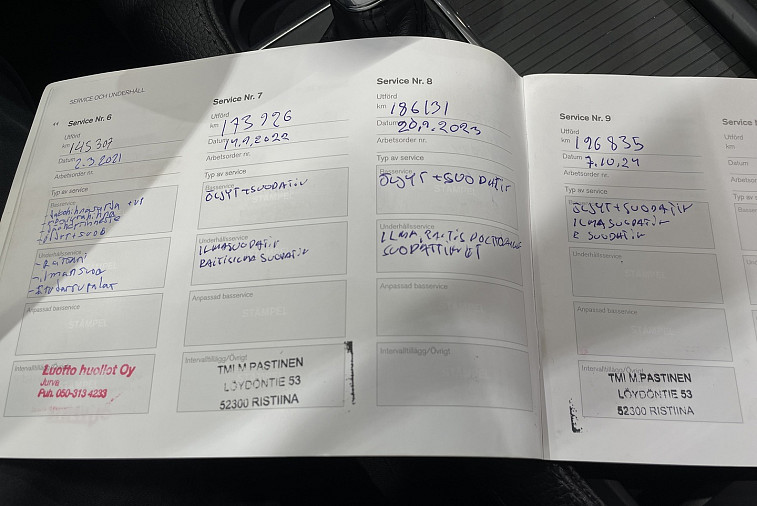 SERVICE OCH UNDERHÅLL
44 Service Nr. 6
Utförd
km 145 307
Datum 2.3 2021
Arbetsorder nr.
Typ av service
Basservice
Underhållsservice
- Raitisni
Anpassad basservice
STÄMPEL
Intervalltillägg/Övrigt
Luotto huollot Oy
Jurva
Puh. 050-313 4233
Service Nr. 7
Utförd
km 173 926
Datum 14.9.2022
Arbetsorder nr.
Typ av service
Basservice
ÖLJYT + SUODATIN
Underhållsservice
ILMASUODATIN
RAITISILMA SUODATIN
Anpassad basservice
STÄMPEL
Intervalltillägg/Övrigt
TMI M.PASTINEN
LÖYDÖNTIE 53
52300 RISTIINA
Service Nr. 8
Utförd
km 186131
Datum 20.9.2023
Arbetsorder nr.
Typ av service
Basservice
ÖLJYT + SUODATIN
Underhållsservice
ILMA, RAITIS POLTTOAINE
SUODATTIMET
Anpassad basservice
STÄMPEL
Intervalltillägg/Övrigt
Service Nr. 9
Utförd
km 196 835
Datum 7.10.24
Arbetsorder nr.
Typ av service
Basservice
ÖLJYT + SUODATIN
ILMASUODATIN
R SUODATIN
Underhållsservice
Anpassad basservice
Intervalltillägg/Övrigt
TMI M.PASTINEN
LÖYDÖNTIE 53
52300 RISTIINA
Utförd
km
Datum